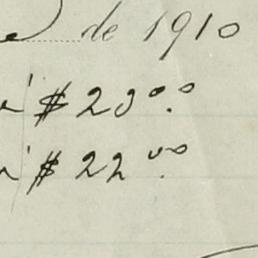 de 1910
$ 23 00
$ 22 00